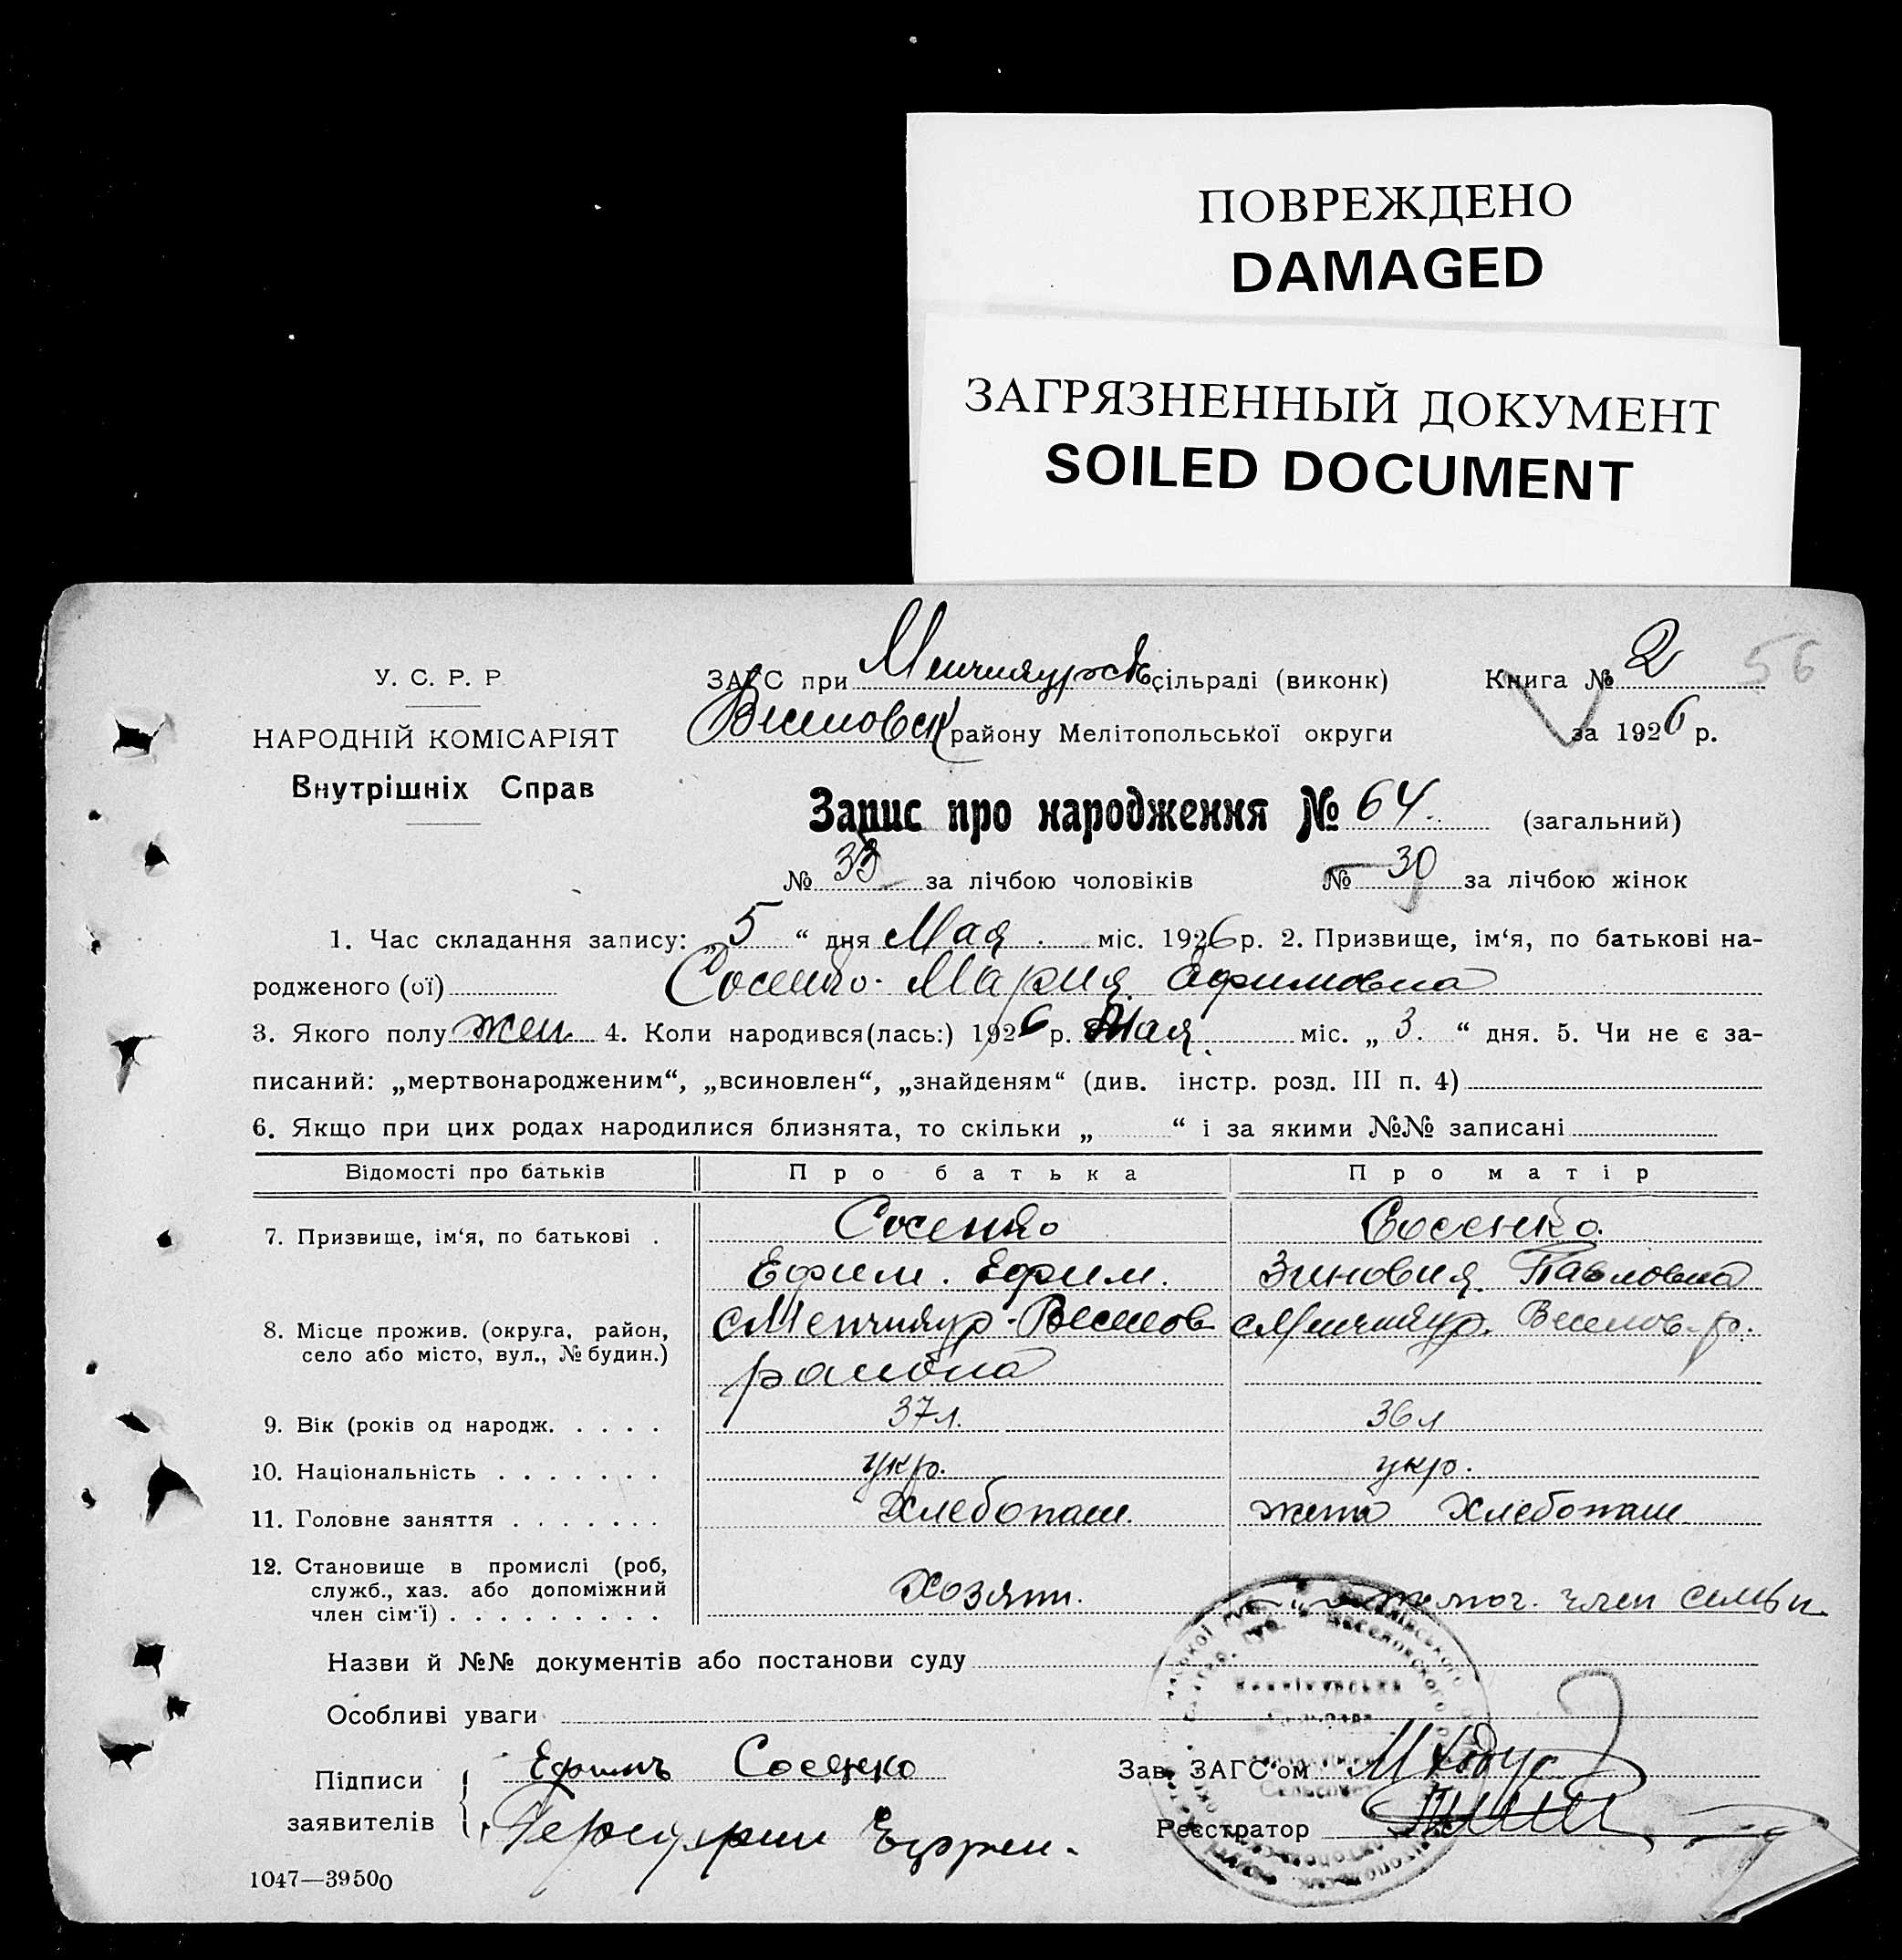 ПОВРЕЖДЕНО
DAMAGED
ЗАГРЯЗНЕННЫЙ ДОКУМЕНТ
SOILED DOCUMENT
56
У. С. Р. Р
НАРОДНІЙ КОМІСАРІЯТ
Внутрішніх Справ
ЗАГС при сільраді (виконк) Книга № 2
Веселовск району Мелітопольської округи за 1926 р.
Запис про народження № 64. (загальний)
№ за лічбою чоловіків № 30 за лічбою жінок
1. Час складання запису: „5 “ дня Мая міс. 1926 р. 2. Призвище, ім‘я, по батькові на-
родженого (ої) Сосенко Мария Ефимовна
3. Якого полу жен 4. Коли народився(лась:) 1926 р. Мая міс. „ 3. “ дня. 5. Чи не є за-
писаний: „мертвонародженим“, „всиновлен“, „знайденям“ (див. інстр. розд. III п. 4)
6. Якщо при цих родах народилися близнята, то скільки „ “ і за якими №№ записані
Відомості про батьків Про батька Про матір
7. Призвище, ім‘я, по батькові . Сосенко Сосенко.
Ефим. Ефим. Зиновия Павловна
8. Місце прожив. (округа, район, село або місто, вул., № будин.) Веселов Веселов. р.
района
9. Вік (років од народж. . . . . 37 л. 36 л
10. Національність . . . . . . . укр. укр.
11. Головне заняття . . . . . . . Хлебопаш. жена Хлебопаш
12. Становище в промислі (роб, служб., хаз. або допоміжний член сім‘ї) . . . . . . . . . Хозяин. член семьи
Назви й №№ документів або постанови суду
Особливі уваги
Підписи заявителів Ефимъ Сосенко
Ефрем.
Зав. ЗАГС‘ом
Реєстратор
1047—39500